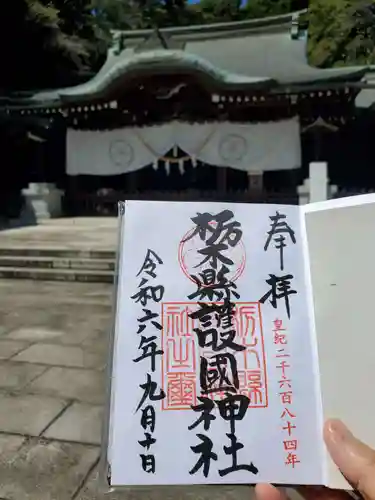 奉拝
皇紀二千六百八十四年
栃木縣護國神社
令和六年九月十日
栃木縣
社之璽